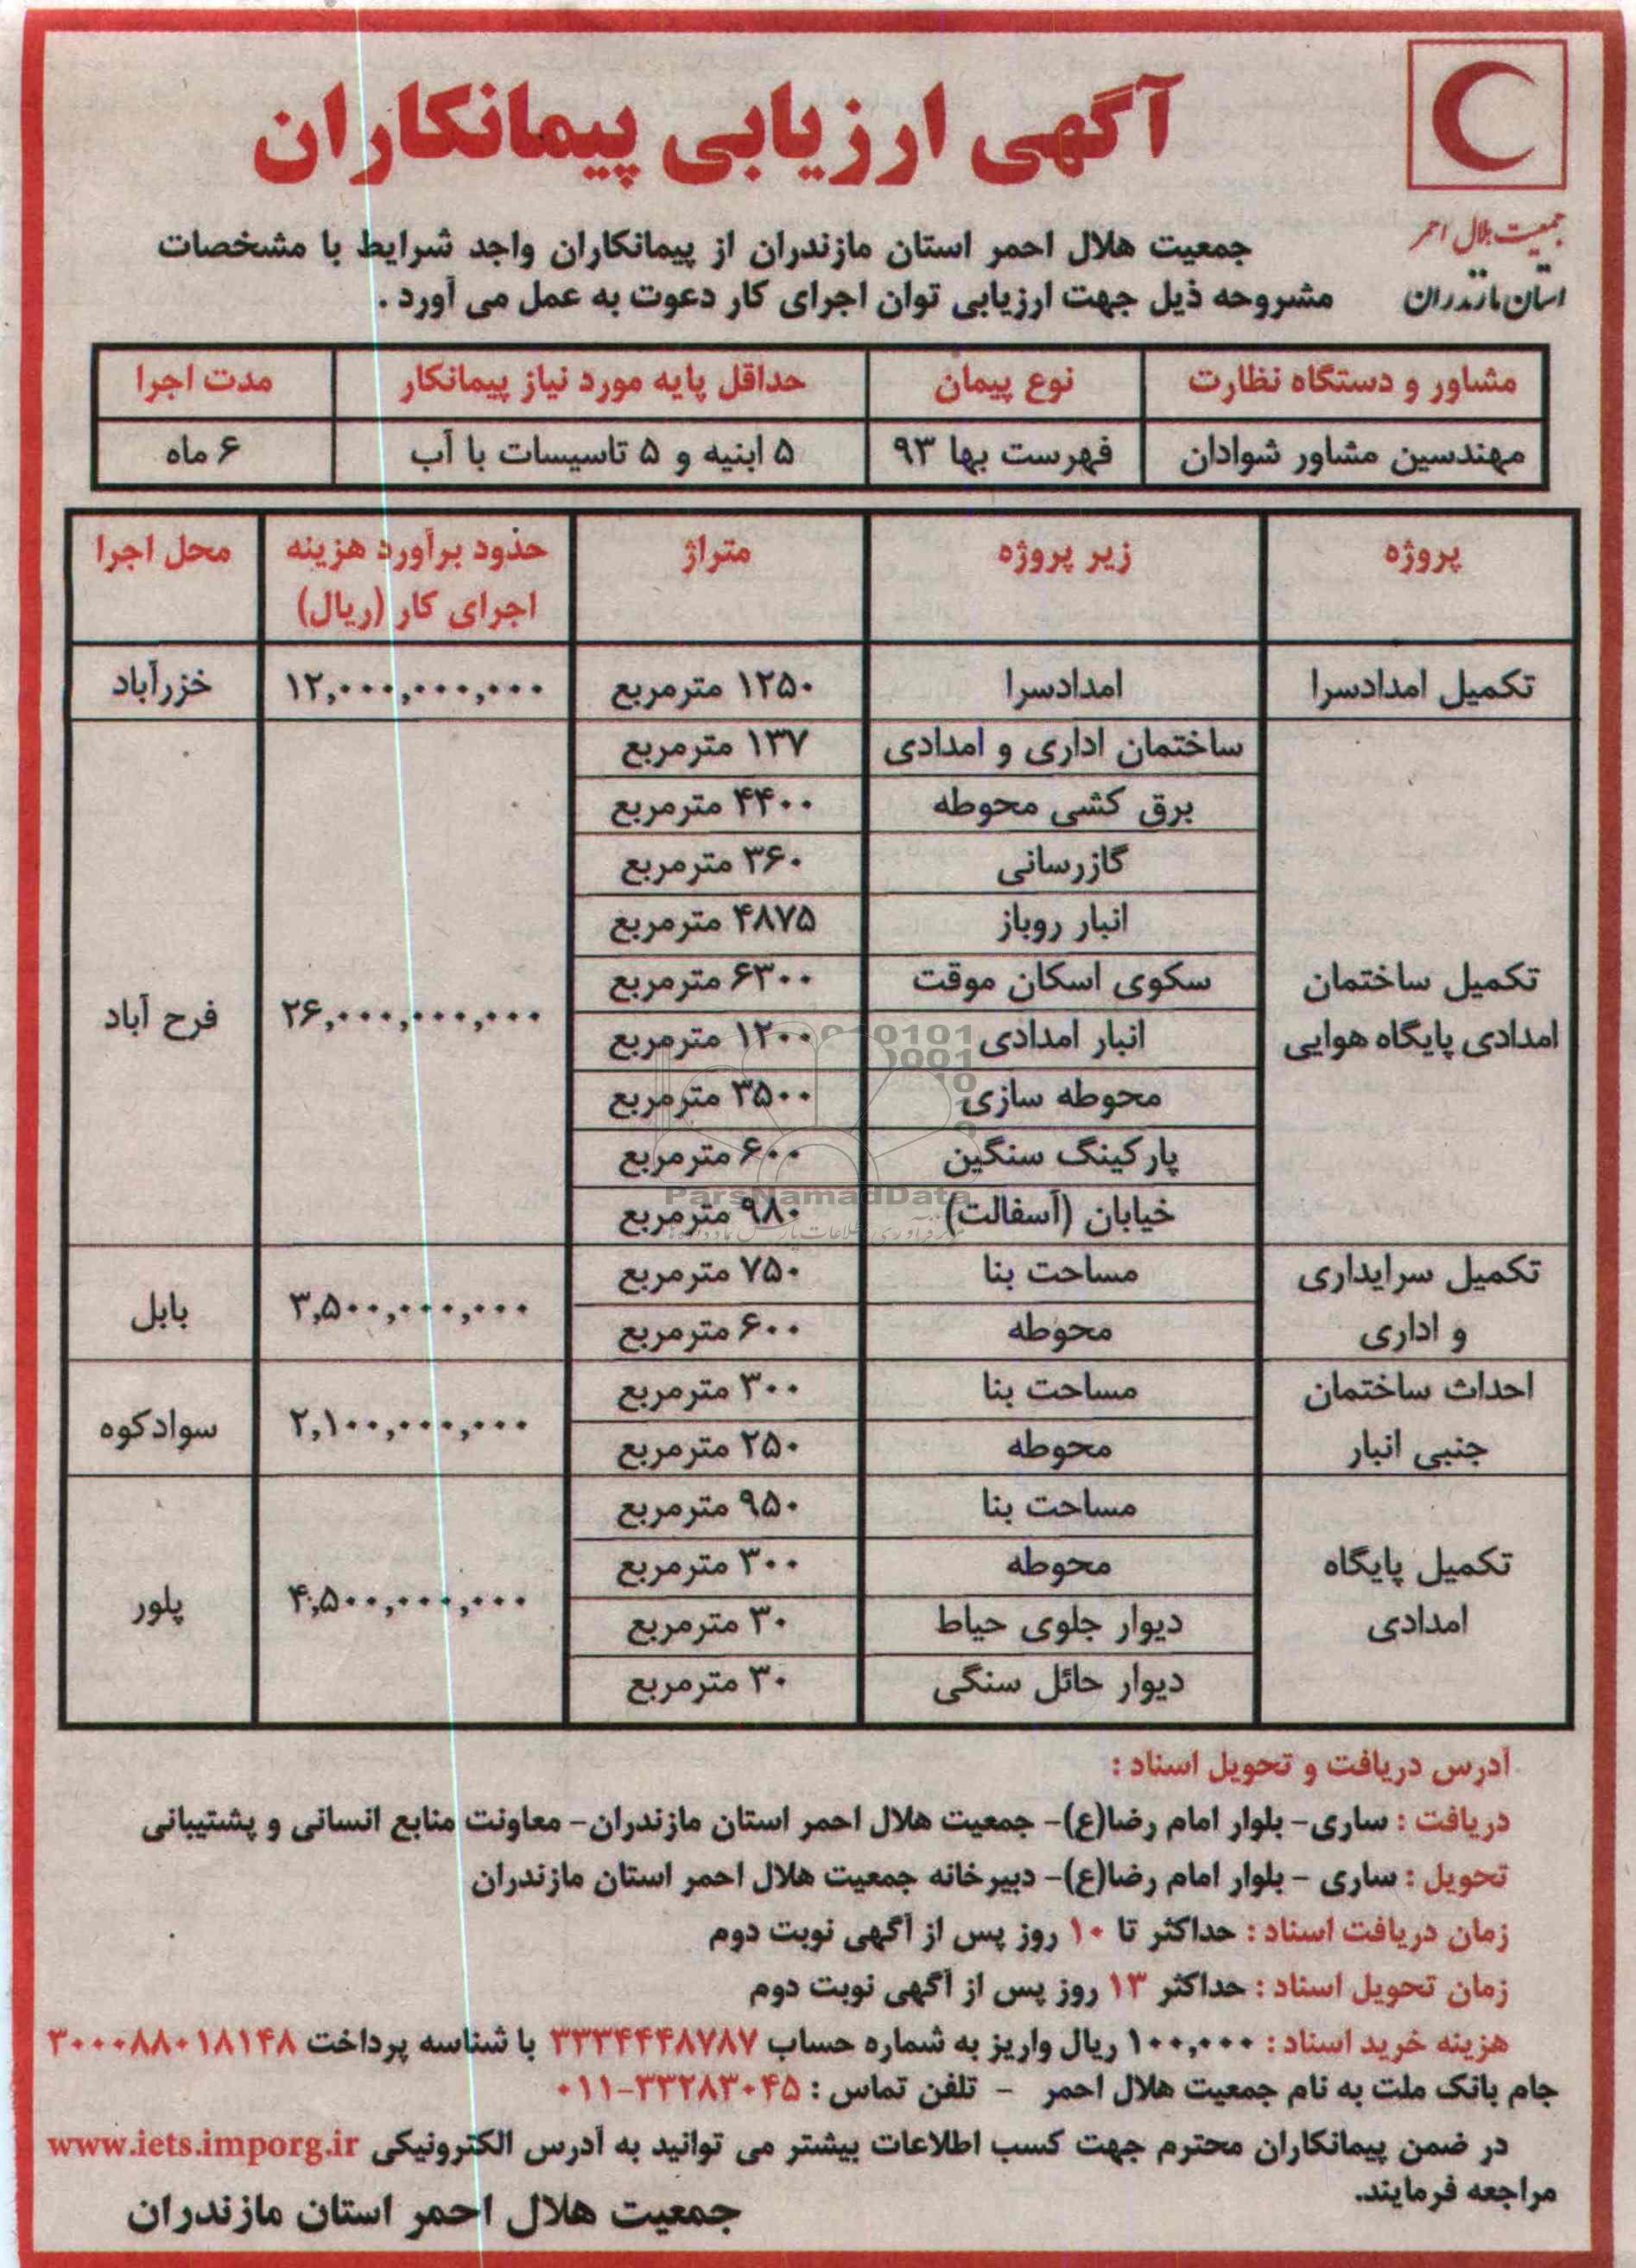 آگهی ارزیابی پیمانکاران
جمعیت هلال احمر
استان مازندران
جمعیت هلال احمر استان مازندران از پیمانکاران واجد شرایط با مشخصات
مشروحه ذیل جهت ارزیابی توان اجرای کار دعوت به عمل می آورد .
مشاور و دستگاه نظارت نوع پیمان حداقل پایه مورد نیاز پیمانکار مدت اجرا
مهندسین مشاور شوادان فهرست بها ۹۳ ۵ ابنیه و ۵ تاسیسات با آب ۶ ماه
پروژه زیر پروژه متراژ حدود برآورد هزینه محل اجرا
اجرای کار (ریال)
تکمیل امدادسرا امدادسرا ۱۲۵۰ مترمربع ۱۲,۰۰۰,۰۰۰,۰۰۰ خزرآباد
ساختمان اداری و امدادی ۱۳۷ مترمربع
برق کشی محوطه ۴۴۰۰ مترمربع
گازرسانی ۳۶۰ مترمربع
انبار روباز ۴۸۷۵ مترمربع
تکمیل ساختمان سکوی اسکان موقت ۶۳۰۰ مترمربع
امدادی پایگاه هوایی انبار امدادی ۱۲۰۰ مترمربع ۲۶,۰۰۰,۰۰۰,۰۰۰ فرح آباد
محوطه سازی ۳۵۰۰ مترمربع
پارکینگ سنگین ۶۰۰ مترمربع
خیابان (آسفالت) ۹۸۰ مترمربع
ParsNamadData
تکمیل سرایداری مساحت بنا ۷۵۰ مترمربع ۳,۵۰۰,۰۰۰,۰۰۰ بابل
و اداری محوطه ۶۰۰ مترمربع
احداث ساختمان مساحت بنا ۳۰۰ مترمربع ۲,۱۰۰,۰۰۰,۰۰۰ سوادکوه
جنبی انبار محوطه ۲۵۰ مترمربع
مساحت بنا ۹۵۰ مترمربع
تکمیل پایگاه محوطه ۳۰۰ مترمربع ۴,۵۰۰,۰۰۰,۰۰۰ پلور
امدادی دیوار جلوی حیاط ۳۰ مترمربع
دیوار حائل سنگی ۳۰ مترمربع
آدرس دریافت و تحویل اسناد :
دریافت : ساری- بلوار امام رضا(ع)- جمعیت هلال احمر استان مازندران- معاونت منابع انسانی و پشتیبانی
تحویل : ساری - بلوار امام رضا(ع)- دبیرخانه جمعیت هلال احمر استان مازندران
زمان دریافت اسناد : حداکثر تا ۱۰ روز پس از آگهی نوبت دوم
زمان تحویل اسناد : حداکثر ۱۳ روز پس از آگهی نوبت دوم
هزینه خرید اسناد : ۱۰۰,۰۰۰ ریال واریز به شماره حساب ۳۳۳۴۴۴۸۷۸۷ با شناسه پرداخت ۳۰۰۰۸۸۰۱۸۱۴۸
جام بانک ملت به نام جمعیت هلال احمر - تلفن تماس : ۳۳۲۸۳۰۴۵-۰۱۱
در ضمن پیمانکاران محترم جهت کسب اطلاعات بیشتر می توانید به آدرس الکترونیکی www.iets.imporg.ir
مراجعه فرمایند.
جمعیت هلال احمر استان مازندران